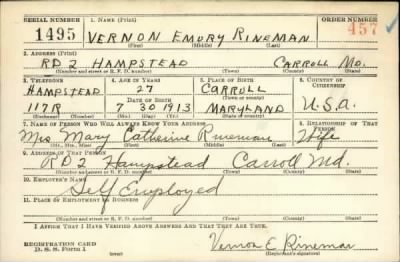 SERIAL NUMBER 1. NAME (Print) ORDER NUMBER
1495 VERNON EMORY RINEMAN 457
(First) (Middle) (Last)
2. ADDRESS (Print)
RD 2 HAMPSTEAD CARROLL MD.
(Number and street or R. F. D. number) (Town) (County) (State)
3. TELEPHONE 4. AGE IN YEARS 5. PLACE OF BIRTH 6. COUNTRY OF CITIZENSHIP
HAMPSTEAD 27 CARROLL
(Town or county)
DATE OF BIRTH U.S.A.
117R 7 30 1913 MARYLAND
(Mo.) (Day) (Yr.) (State or country)
7. NAME OF PERSON WHO WILL ALWAYS KNOW YOUR ADDRESS 8. RELATIONSHIP OF THAT PERSON
Mrs Mary Catherine Rineman Wife
(Mr., Mrs., Miss) (First) (Middle) (Last)
9. ADDRESS OF THAT PERSON
RD 2 Hampstead Carroll Md.
(Number and street or R. F. D. number) (Town) (County) (State)
10. EMPLOYER'S NAME
Self Employed
11. PLACE OF EMPLOYMENT OR BUSINESS
(Number and street or R. F. D. number) (Town) (County) (State)
I AFFIRM THAT I HAVE VERIFIED ABOVE ANSWERS AND THAT THEY ARE TRUE.
REGISTRATION CARD
D. S. S. Form 1 Vernon E Rineman
(Registrant's signature)